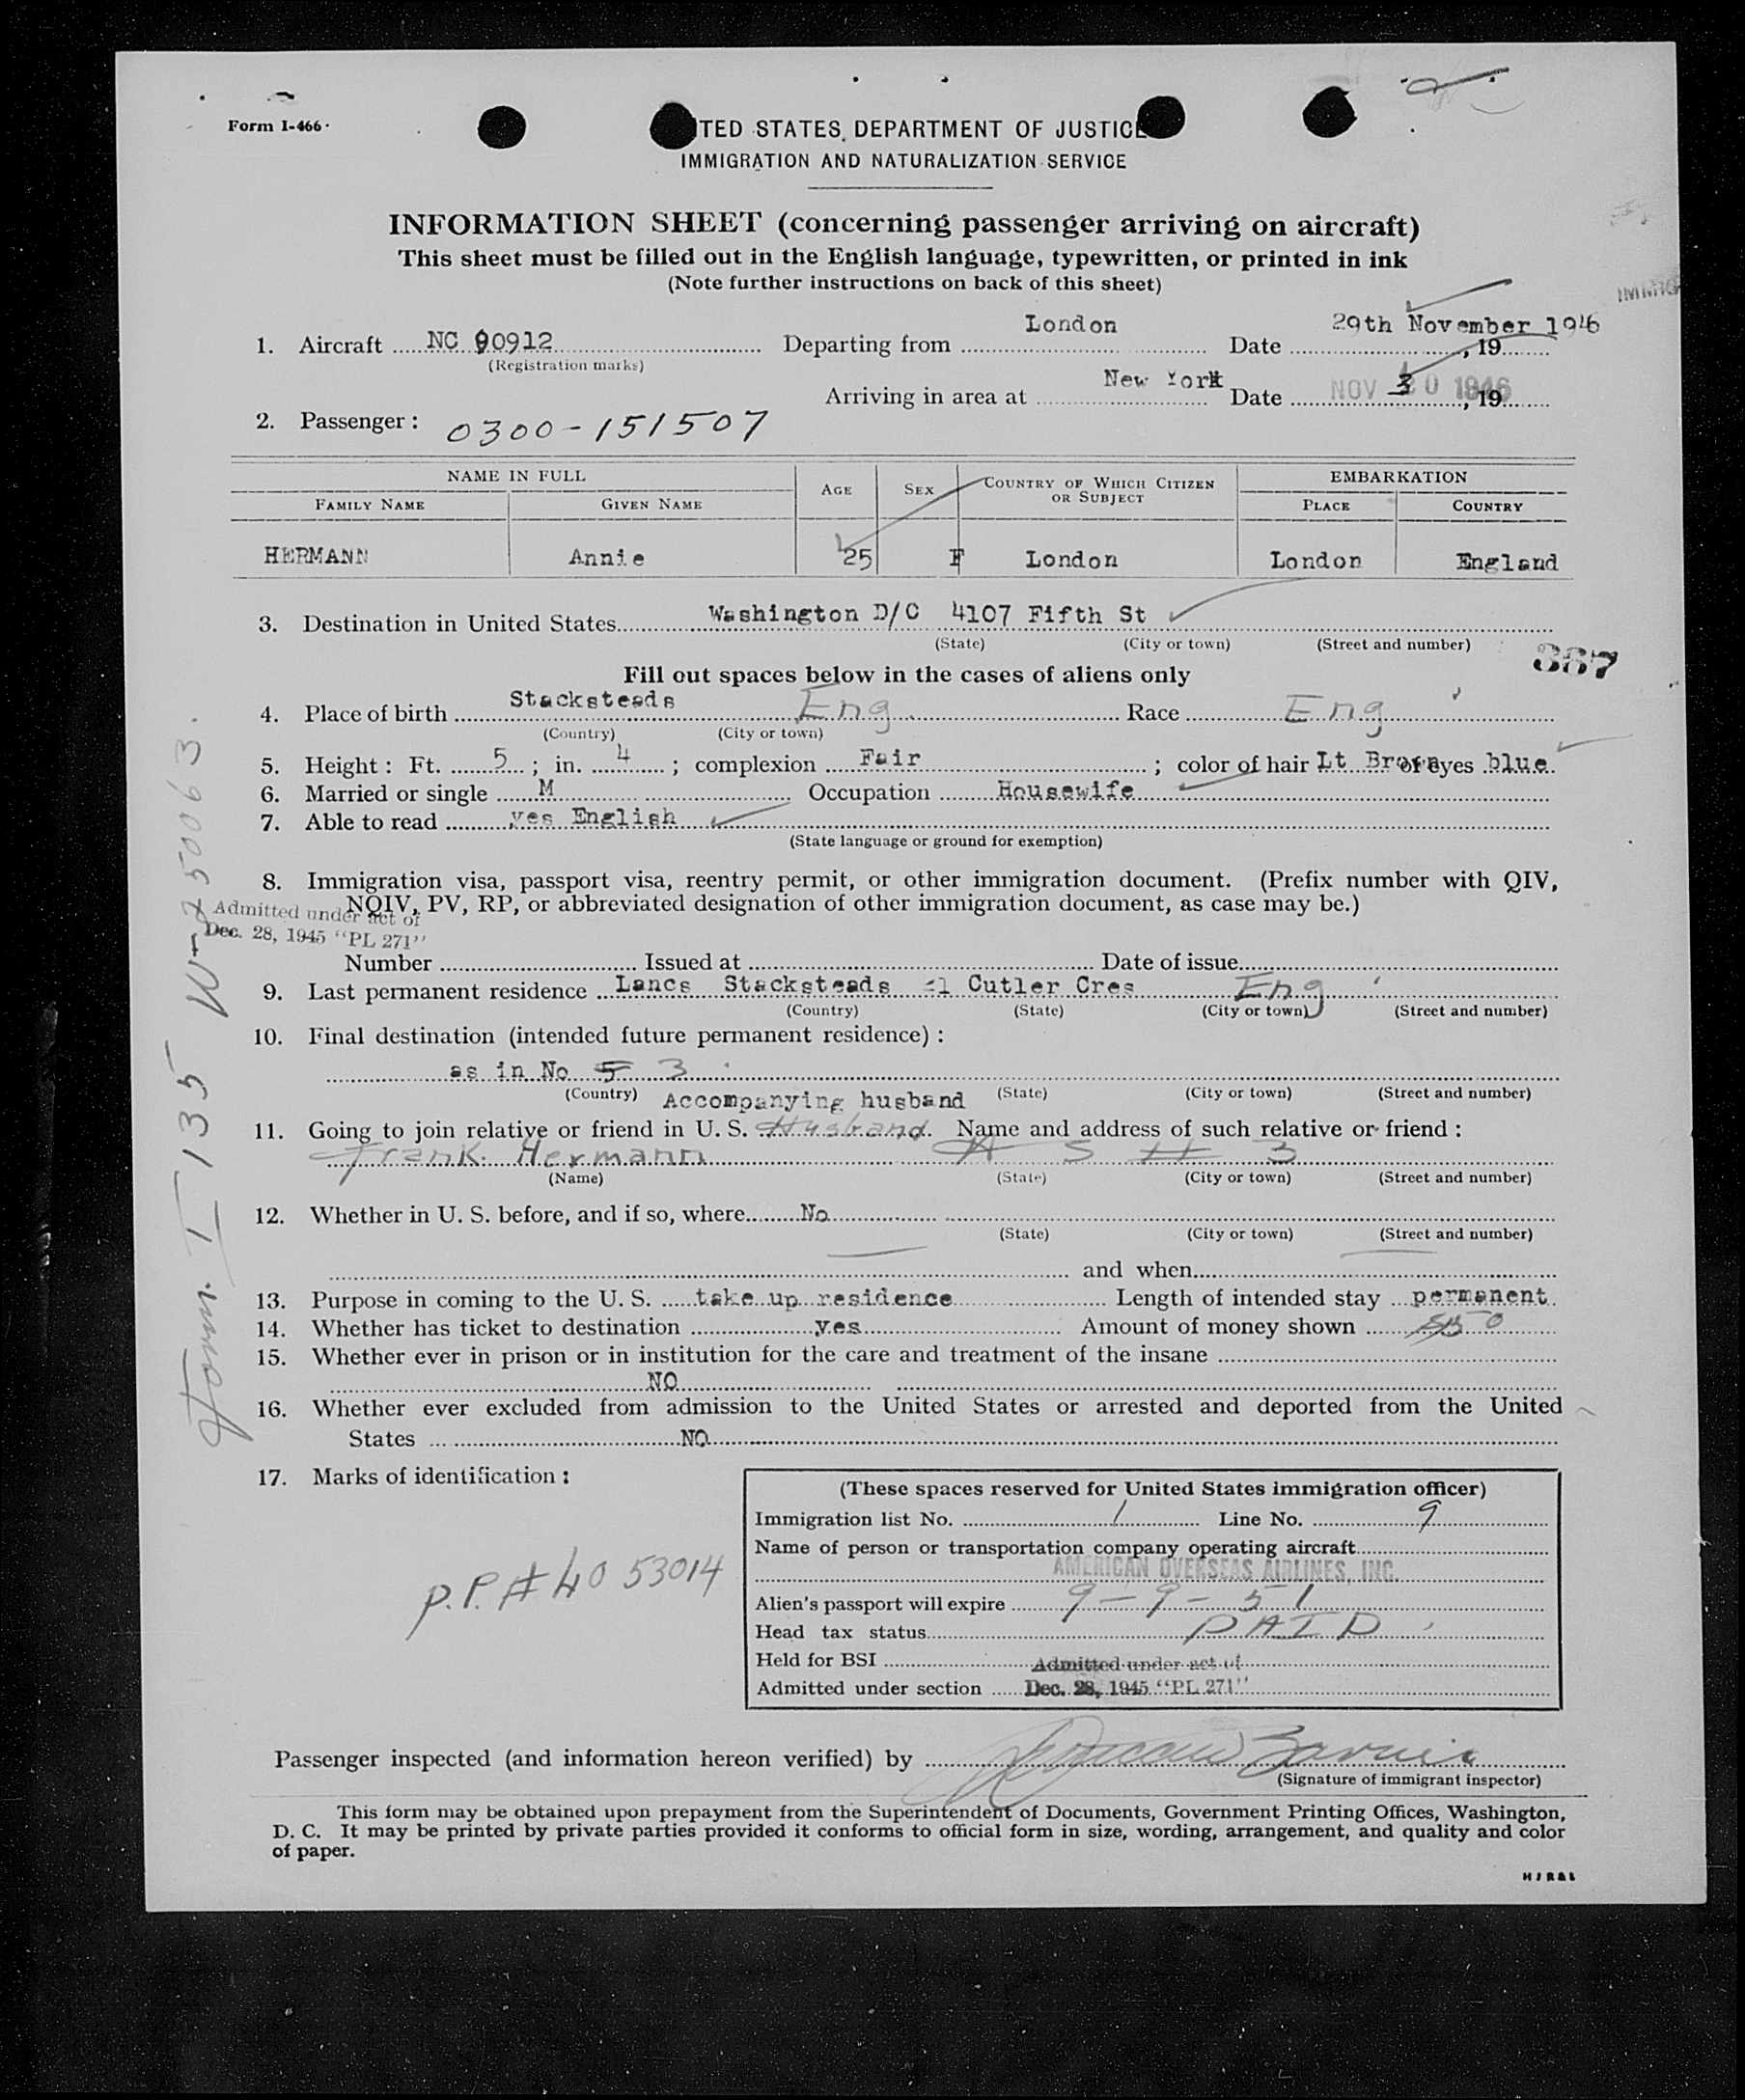 Form I-466
TED STATES DEPARTMENT OF JUSTICE
IMMIGRATION AND NATURALIZATION SERVICE
INFORMATION SHEET (concerning passenger arriving on aircraft)
This sheet must be filled out in the English language, typewritten, or printed in ink
(Note further instructions on back of this sheet)
1. Aircraft NC 90912 Departing from London Date 29th November 1946, 19
(Registration marks)
Arriving in area at New York Date NOV 30 1946, 19
2. Passenger: 0300-151507
NAME IN FULL AGE SEX COUNTRY OF WHICH CITIZEN OR SUBJECT EMBARKATION
FAMILY NAME GIVEN NAME PLACE COUNTRY
HERMANN Annie 25 F London London England
3. Destination in United States Washington D/C 4107 Fifth St
(State) (City or town) (Street and number)
367
Fill out spaces below in the cases of aliens only
4. Place of birth Stacksteads Eng Race Eng
(Country) (City or town)
5. Height: Ft. 5; in. 4; complexion Fair; color of hair Lt Brown of eyes blue
6. Married or single M Occupation Housewife
7. Able to read yes English
(State language or ground for exemption)
8. Immigration visa, passport visa, reentry permit, or other immigration document. (Prefix number with QIV,
NQIV, PV, RP, or abbreviated designation of other immigration document, as case may be.)
Admitted under act of
Dec. 28, 1945 "PL 271"
Number Issued at Date of issue
9. Last permanent residence Lancs Stacksteads Cutler Cres Eng
(Country) (State) (City or town) (Street and number)
10. Final destination (intended future permanent residence):
as in No 5 3
(Country) (State) (City or town) (Street and number)
Accompanying husband
11. Going to join relative or friend in U. S. Husband. Name and address of such relative or friend:
Frank Hermann A S # 3
(Name) (State) (City or town) (Street and number)
12. Whether in U. S. before, and if so, where No
(State) (City or town) (Street and number)
and when
13. Purpose in coming to the U. S. take up residence Length of intended stay permanent
14. Whether has ticket to destination yes Amount of money shown
15. Whether ever in prison or in institution for the care and treatment of the insane
NO
16. Whether ever excluded from admission to the United States or arrested and deported from the United
States NO
17. Marks of identification:
P.P. # 40 53014
(These spaces reserved for United States immigration officer)
Immigration list No. 1 Line No. 9
Name of person or transportation company operating aircraft
AMERICAN OVERSEAS AIRLINES, INC.
Alien's passport will expire 9-9-51
Head tax status PAID
Held for BSI
Admitted under section Admitted under act of Dec. 28, 1945 "PL 271"
Passenger inspected (and information hereon verified) by
(Signature of immigrant inspector)
This form may be obtained upon prepayment from the Superintendent of Documents, Government Printing Offices, Washington,
D. C. It may be printed by private parties provided it conforms to official form in size, wording, arrangement, and quality and color
of paper.
Form I 135